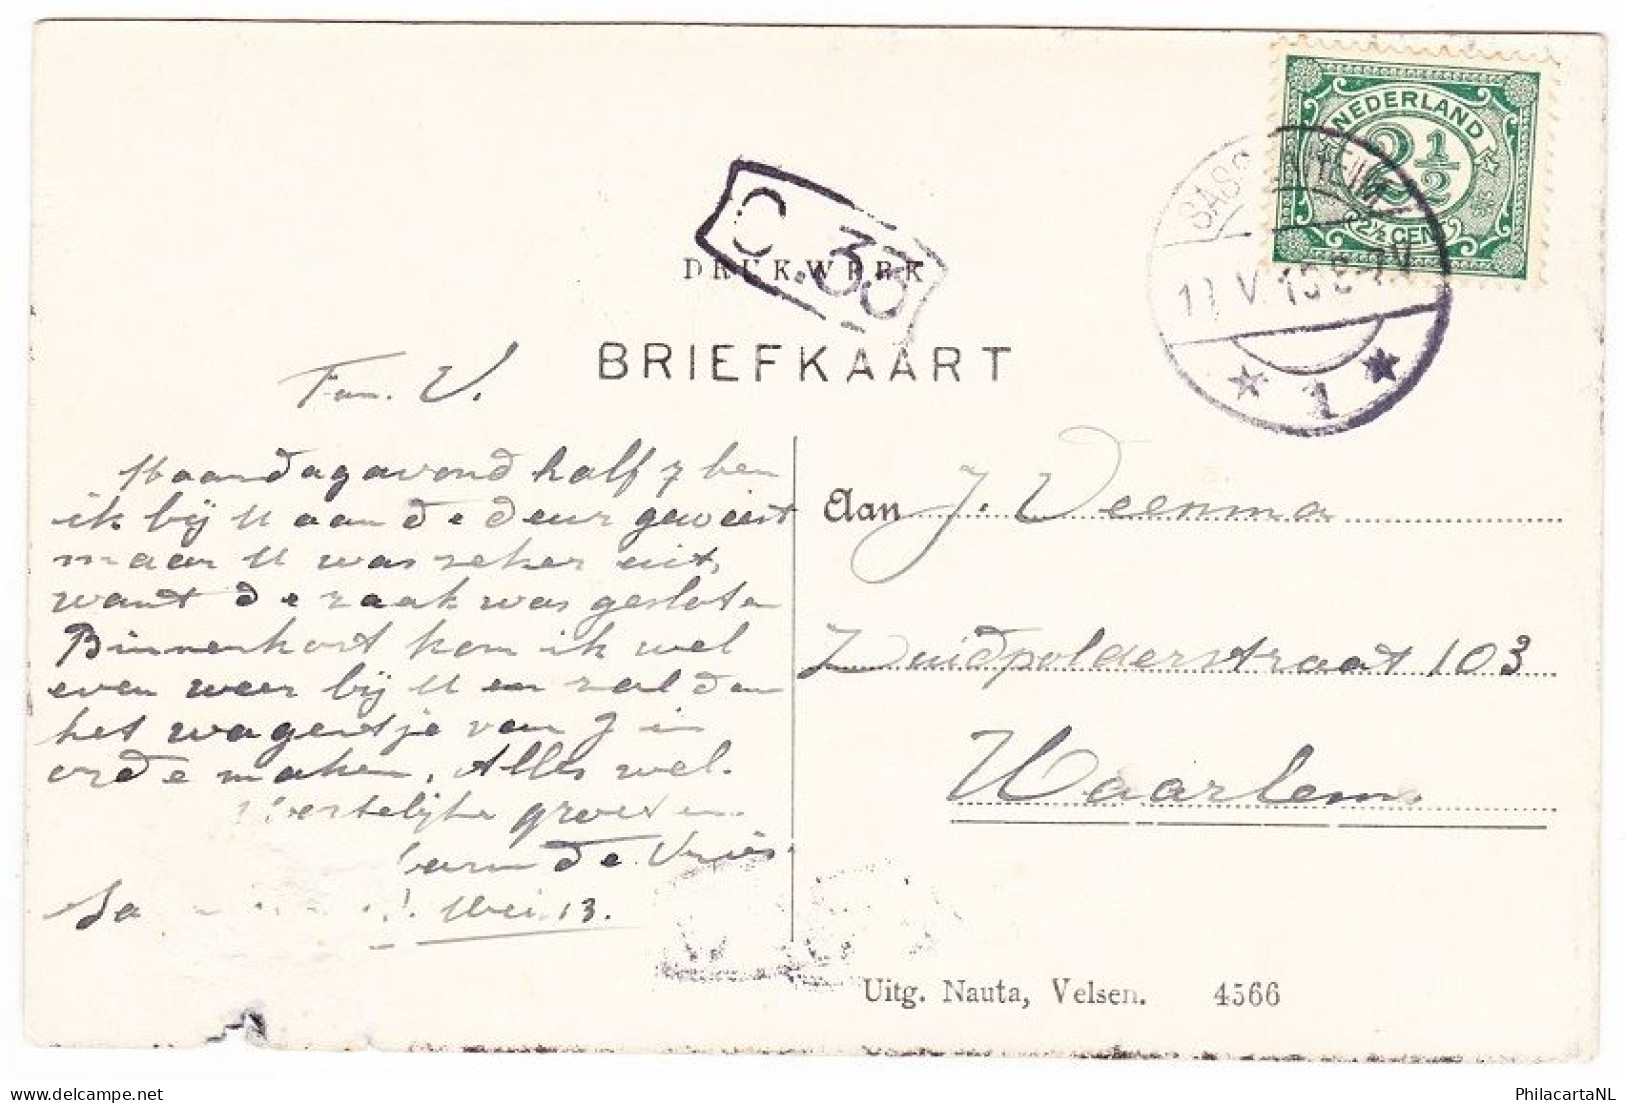 NEDERLAND
2½
2½ CENT
SASSENHEIM
V. 13
1
C.33
DRUKWERK
BRIEFKAART
Fam. V.
Maandagavond half 7 ben
ik bij U aan de deur geweest
maar U was zeker uit,
want de zaak was gesloten
Binnenkort kom ik wel
even weer bij U en zal dan
het wagentje van J in
orde maken. Alles wel.
groeten
de Vries.
Mei. 13.
Aan J. Veenma
Zuidpolderstraat 103
Haarlem
Uitg. Nauta, Velsen. 4566
PhilacartaNL